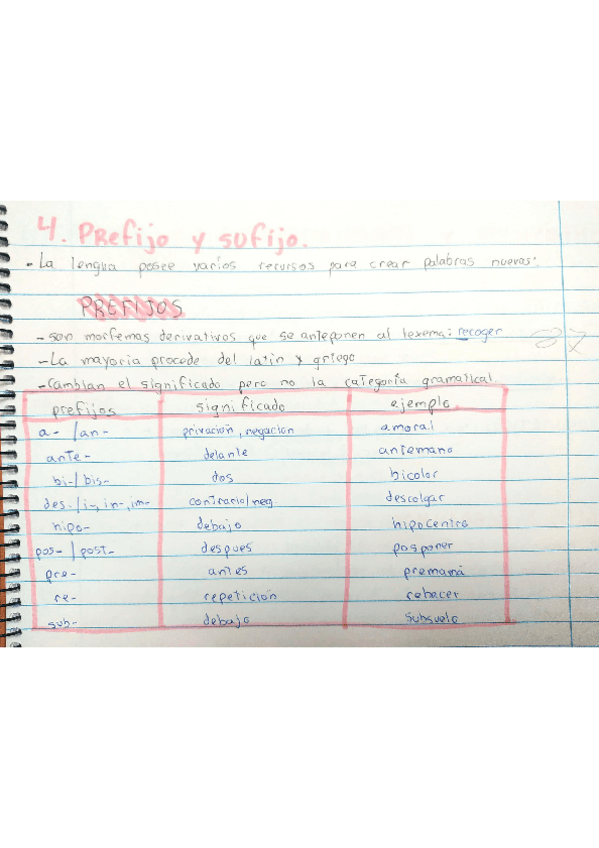 4. Prefijo y sufijo.
- La lengua posee varios recursos para crear palabras nuevas:
PREFIJOS
- son morfemas derivativos que se anteponen al lexema: recoger
- La mayoria procede del latin y griego
- Cambian el significado pero no la categoría gramatical.
prefijos significado ejemplo
a- / an- privación, negación amoral
ante- delante antemano
bi-/ bis- dos bicolor
des- / i-, in-, im- contrario/neg. descolgar
hipo- debajo hipocentro
pos- / post- despues posponer
pre- antes premamá
re- repetición rehacer
sub- debajo subsuelo